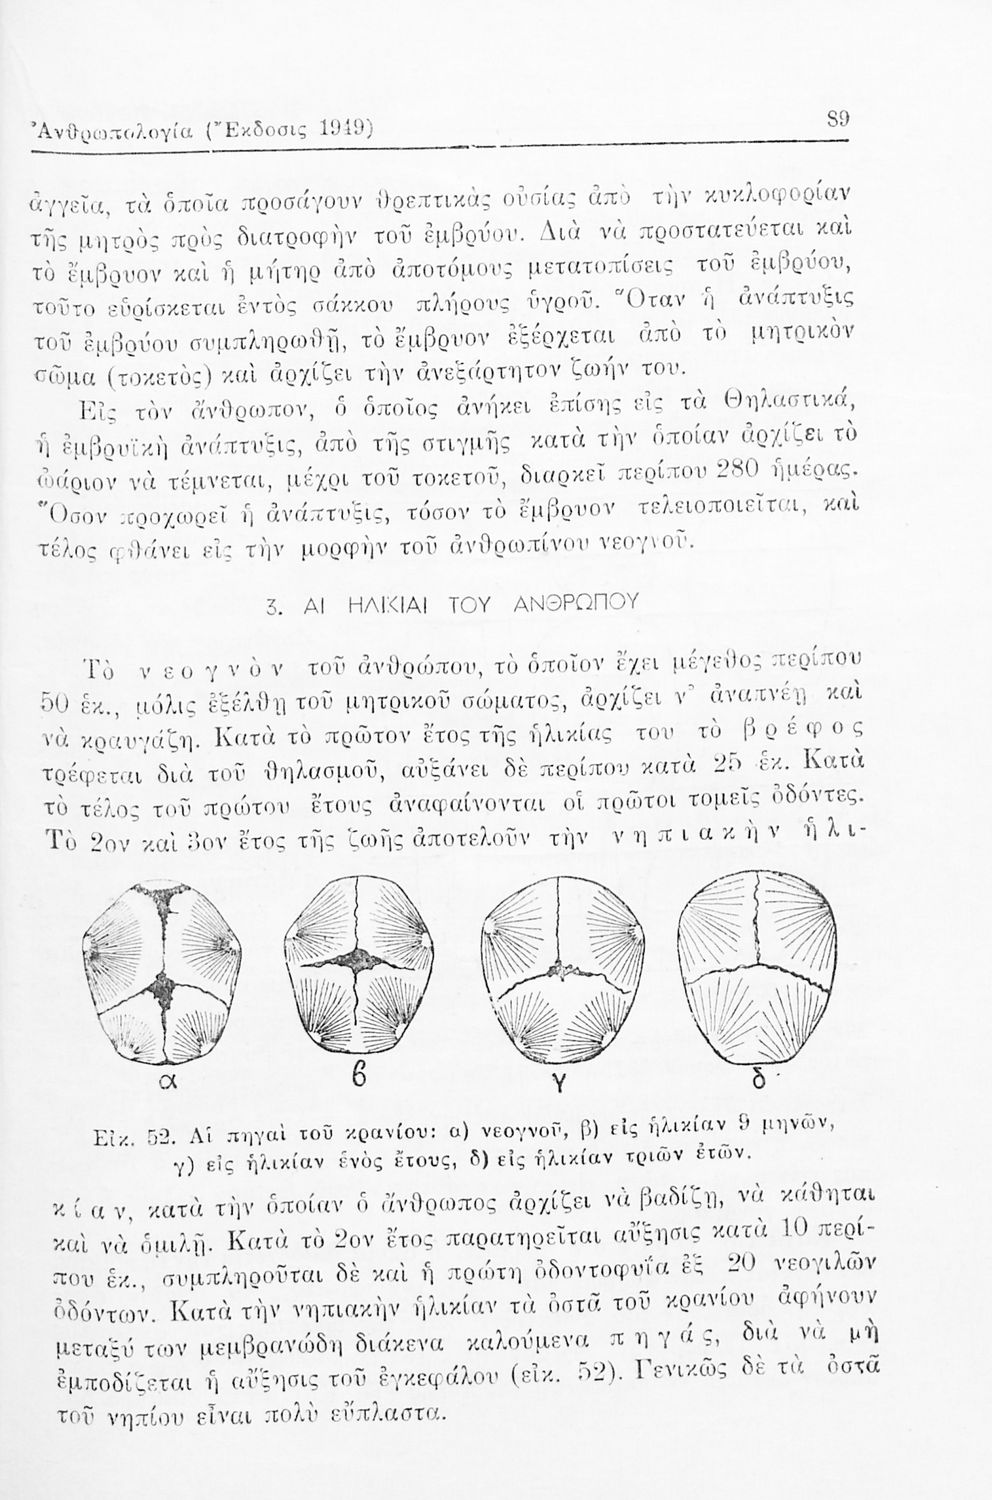 Ἀνθρωπολογία (Ἔκδοσις 1949) 89
ἀγγεῖα, τὰ ὁποῖα προσάγουν θρεπτικὰς οὐσίας ἀπὸ τὴν κυκλοφορίαν
τῆς μητρὸς πρὸς διατροφὴν τοῦ ἐμβρύου. Διὰ νὰ προστατεύεται καὶ
τὸ ἔμβρυον καὶ ἡ μήτηρ ἀπὸ ἀποτόμους μετατοπίσεις τοῦ ἐμβρύου,
τοῦτο εὑρίσκεται ἐντὸς σάκκου πλήρους ὑγροῦ. Ὅταν ἡ ἀνάπτυξις
τοῦ ἐμβρύου συμπληρωθῇ, τὸ ἔμβρυον ἐξέρχεται ἀπὸ τὸ μητρικὸν
σῶμα (τοκετὸς) καὶ ἀρχίζει τὴν ἀνεξάρτητον ζωήν του.
Εἰς τὸν ἄνθρωπον, ὁ ὁποῖος ἀνήκει ἐπίσης εἰς τὰ Θηλαστικά,
ἡ ἐμβρυϊκὴ ἀνάπτυξις, ἀπὸ τῆς στιγμῆς κατὰ τὴν ὁποίαν ἀρχίζει τὸ
ὠάριον νὰ τέμνεται, μέχρι τοῦ τοκετοῦ, διαρκεῖ περίπου 280 ἡμέρας.
Ὅσον προχωρεῖ ἡ ἀνάπτυξις, τόσον τὸ ἔμβρυον τελειοποιεῖται, καὶ
τέλος φθάνει εἰς τὴν μορφὴν τοῦ ἀνθρωπίνου νεογνοῦ.
3. ΑΙ ΗΛΙΚΙΑΙ ΤΟΥ ΑΝΘΡΩΠΟΥ
Τὸ νεογνὸν τοῦ ἀνθρώπου, τὸ ὁποῖον ἔχει μέγεθος περίπου
50 ἑκ., μόλις ἐξέλθῃ τοῦ μητρικοῦ σώματος, ἀρχίζει ν’ ἀναπνέῃ καὶ
νὰ κραυγάζῃ. Κατὰ τὸ πρῶτον ἔτος τῆς ἡλικίας του τὸ βρέφος
τρέφεται διὰ τοῦ θηλασμοῦ, αὐξάνει δὲ περίπου κατὰ 25 ἑκ. Κατὰ
τὸ τέλος τοῦ πρώτου ἔτους ἀναφαίνονται οἱ πρῶτοι τομεῖς ὀδόντες.
Τὸ 2ον καὶ 3ον ἔτος τῆς ζωῆς ἀποτελοῦν τὴν νηπιακὴν ἡλι-
α β γ δ
Εἰκ. 52. Αἱ πηγαὶ τοῦ κρανίου: α) νεογνοῦ, β) εἰς ἡλικίαν 9 μηνῶν,
γ) εἰς ἡλικίαν ἑνὸς ἔτους, δ) εἰς ἡλικίαν τριῶν ἐτῶν.
κίαν, κατὰ τὴν ὁποίαν ὁ ἄνθρωπος ἀρχίζει νὰ βαδίζῃ, νὰ κάθηται
καὶ νὰ ὁμιλῇ. Κατὰ τὸ 2ον ἔτος παρατηρεῖται αὔξησις κατὰ 10 περί-
που ἑκ., συμπληροῦται δὲ καὶ ἡ πρώτη ὀδοντοφυΐα ἐξ 20 νεογιλῶν
ὀδόντων. Κατὰ τὴν νηπιακὴν ἡλικίαν τὰ ὀστᾶ τοῦ κρανίου ἀφήνουν
μεταξύ των μεμβρανώδη διάκενα καλούμενα πηγάς, διὰ νὰ μὴ
ἐμποδίζεται ἡ αὔξησις τοῦ ἐγκεφάλου (εἰκ. 52). Γενικῶς δὲ τὰ ὀστᾶ
τοῦ νηπίου εἶναι πολὺ εὔπλαστα.